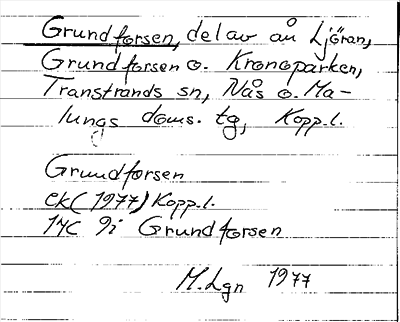 Grundforsen, del av ån Ljöran,
Grundforsen o. Kronoparken,
Transtrands sn, Nås o. Ma-
lungs doms. tg, Kopp.l.
Grundforsen
ek (1977) Kopp.l.
17C 9i Grundforsen
M.Lgn 1977